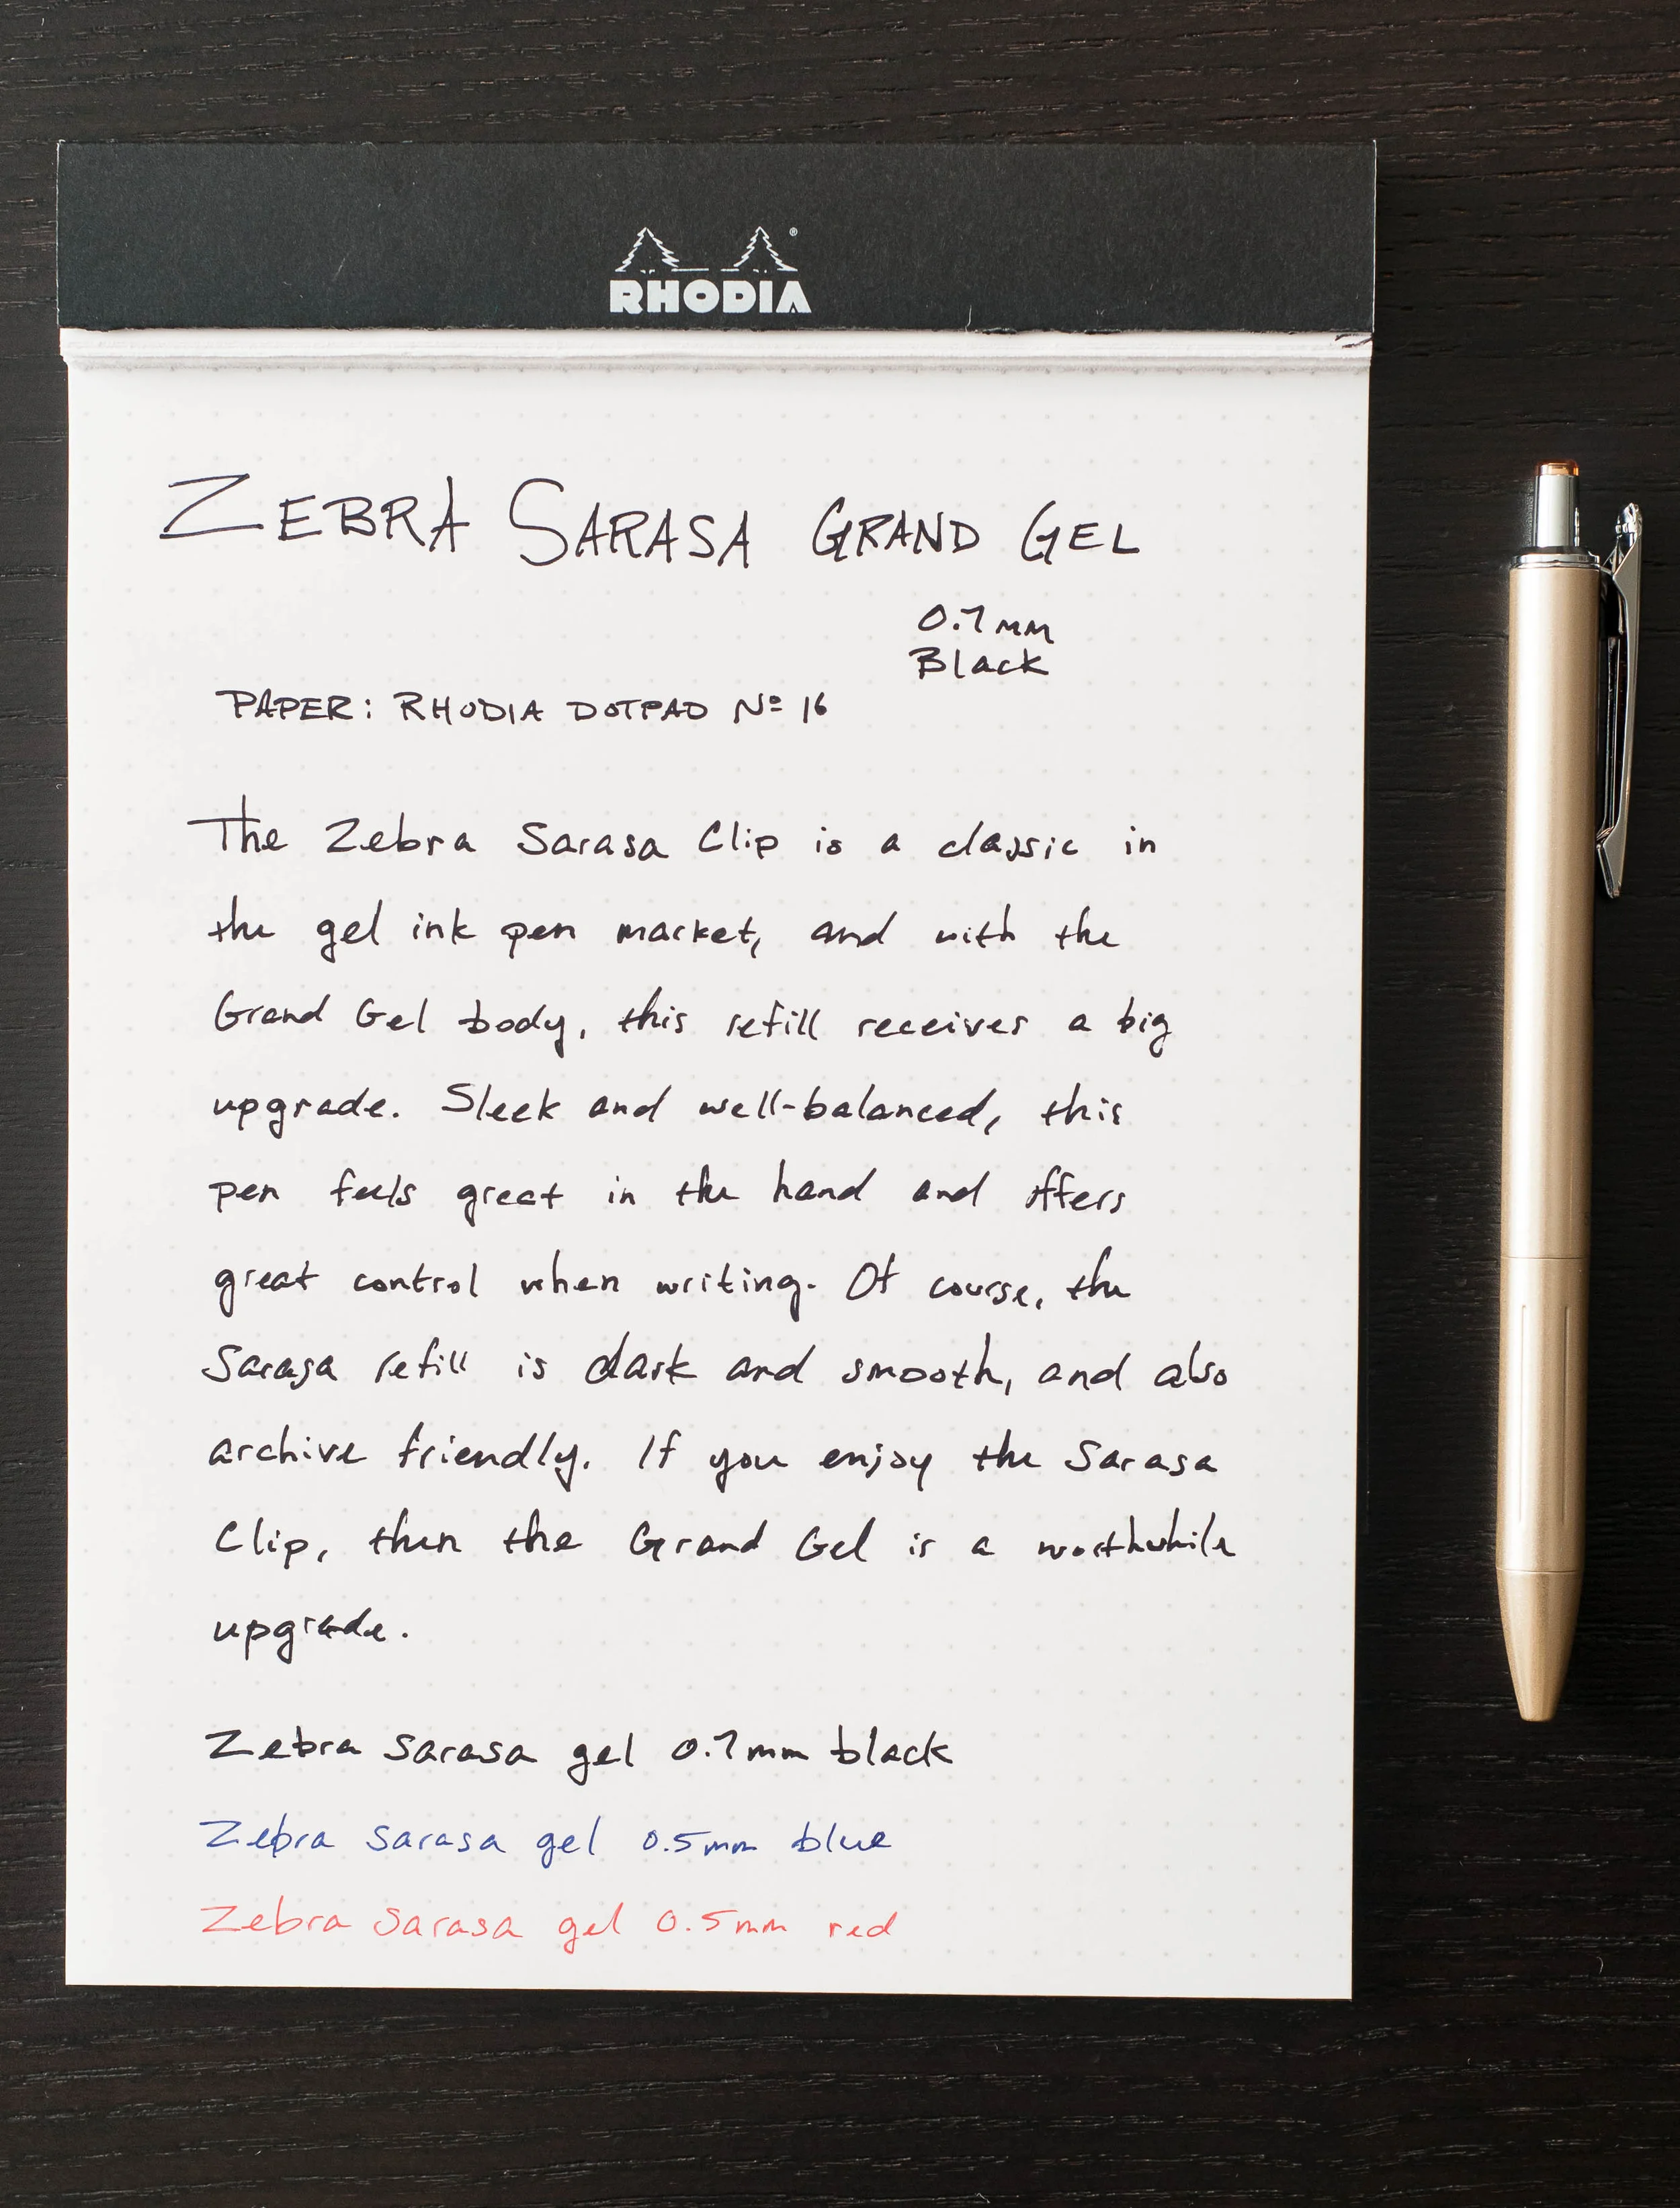 RHODIA
ZEBRA SARASA GRAND GEL
0.7mm
Black
PAPER: RHODIA DOTPAD Nº 16
The Zebra Sarasa Clip is a classic in
the gel ink pen market, and with the
Grand Gel body, this refill receives a big
upgrade. Sleek and well-balanced, this
pen feels great in the hand and offers
great control when writing. Of course, the
Sarasa refill is dark and smooth, and also
archive friendly. If you enjoy the Sarasa
Clip, then the Grand Gel is a worthwhile
upgrade.
Zebra Sarasa gel 0.7mm black
Zebra Sarasa gel 0.5mm blue
Zebra Sarasa gel 0.5mm red